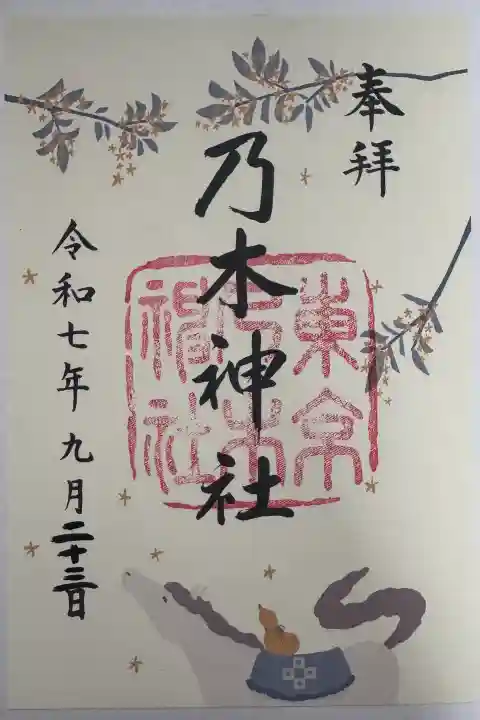 奉拝
乃木神社
東京
乃木
神社
令和七年九月二十三日